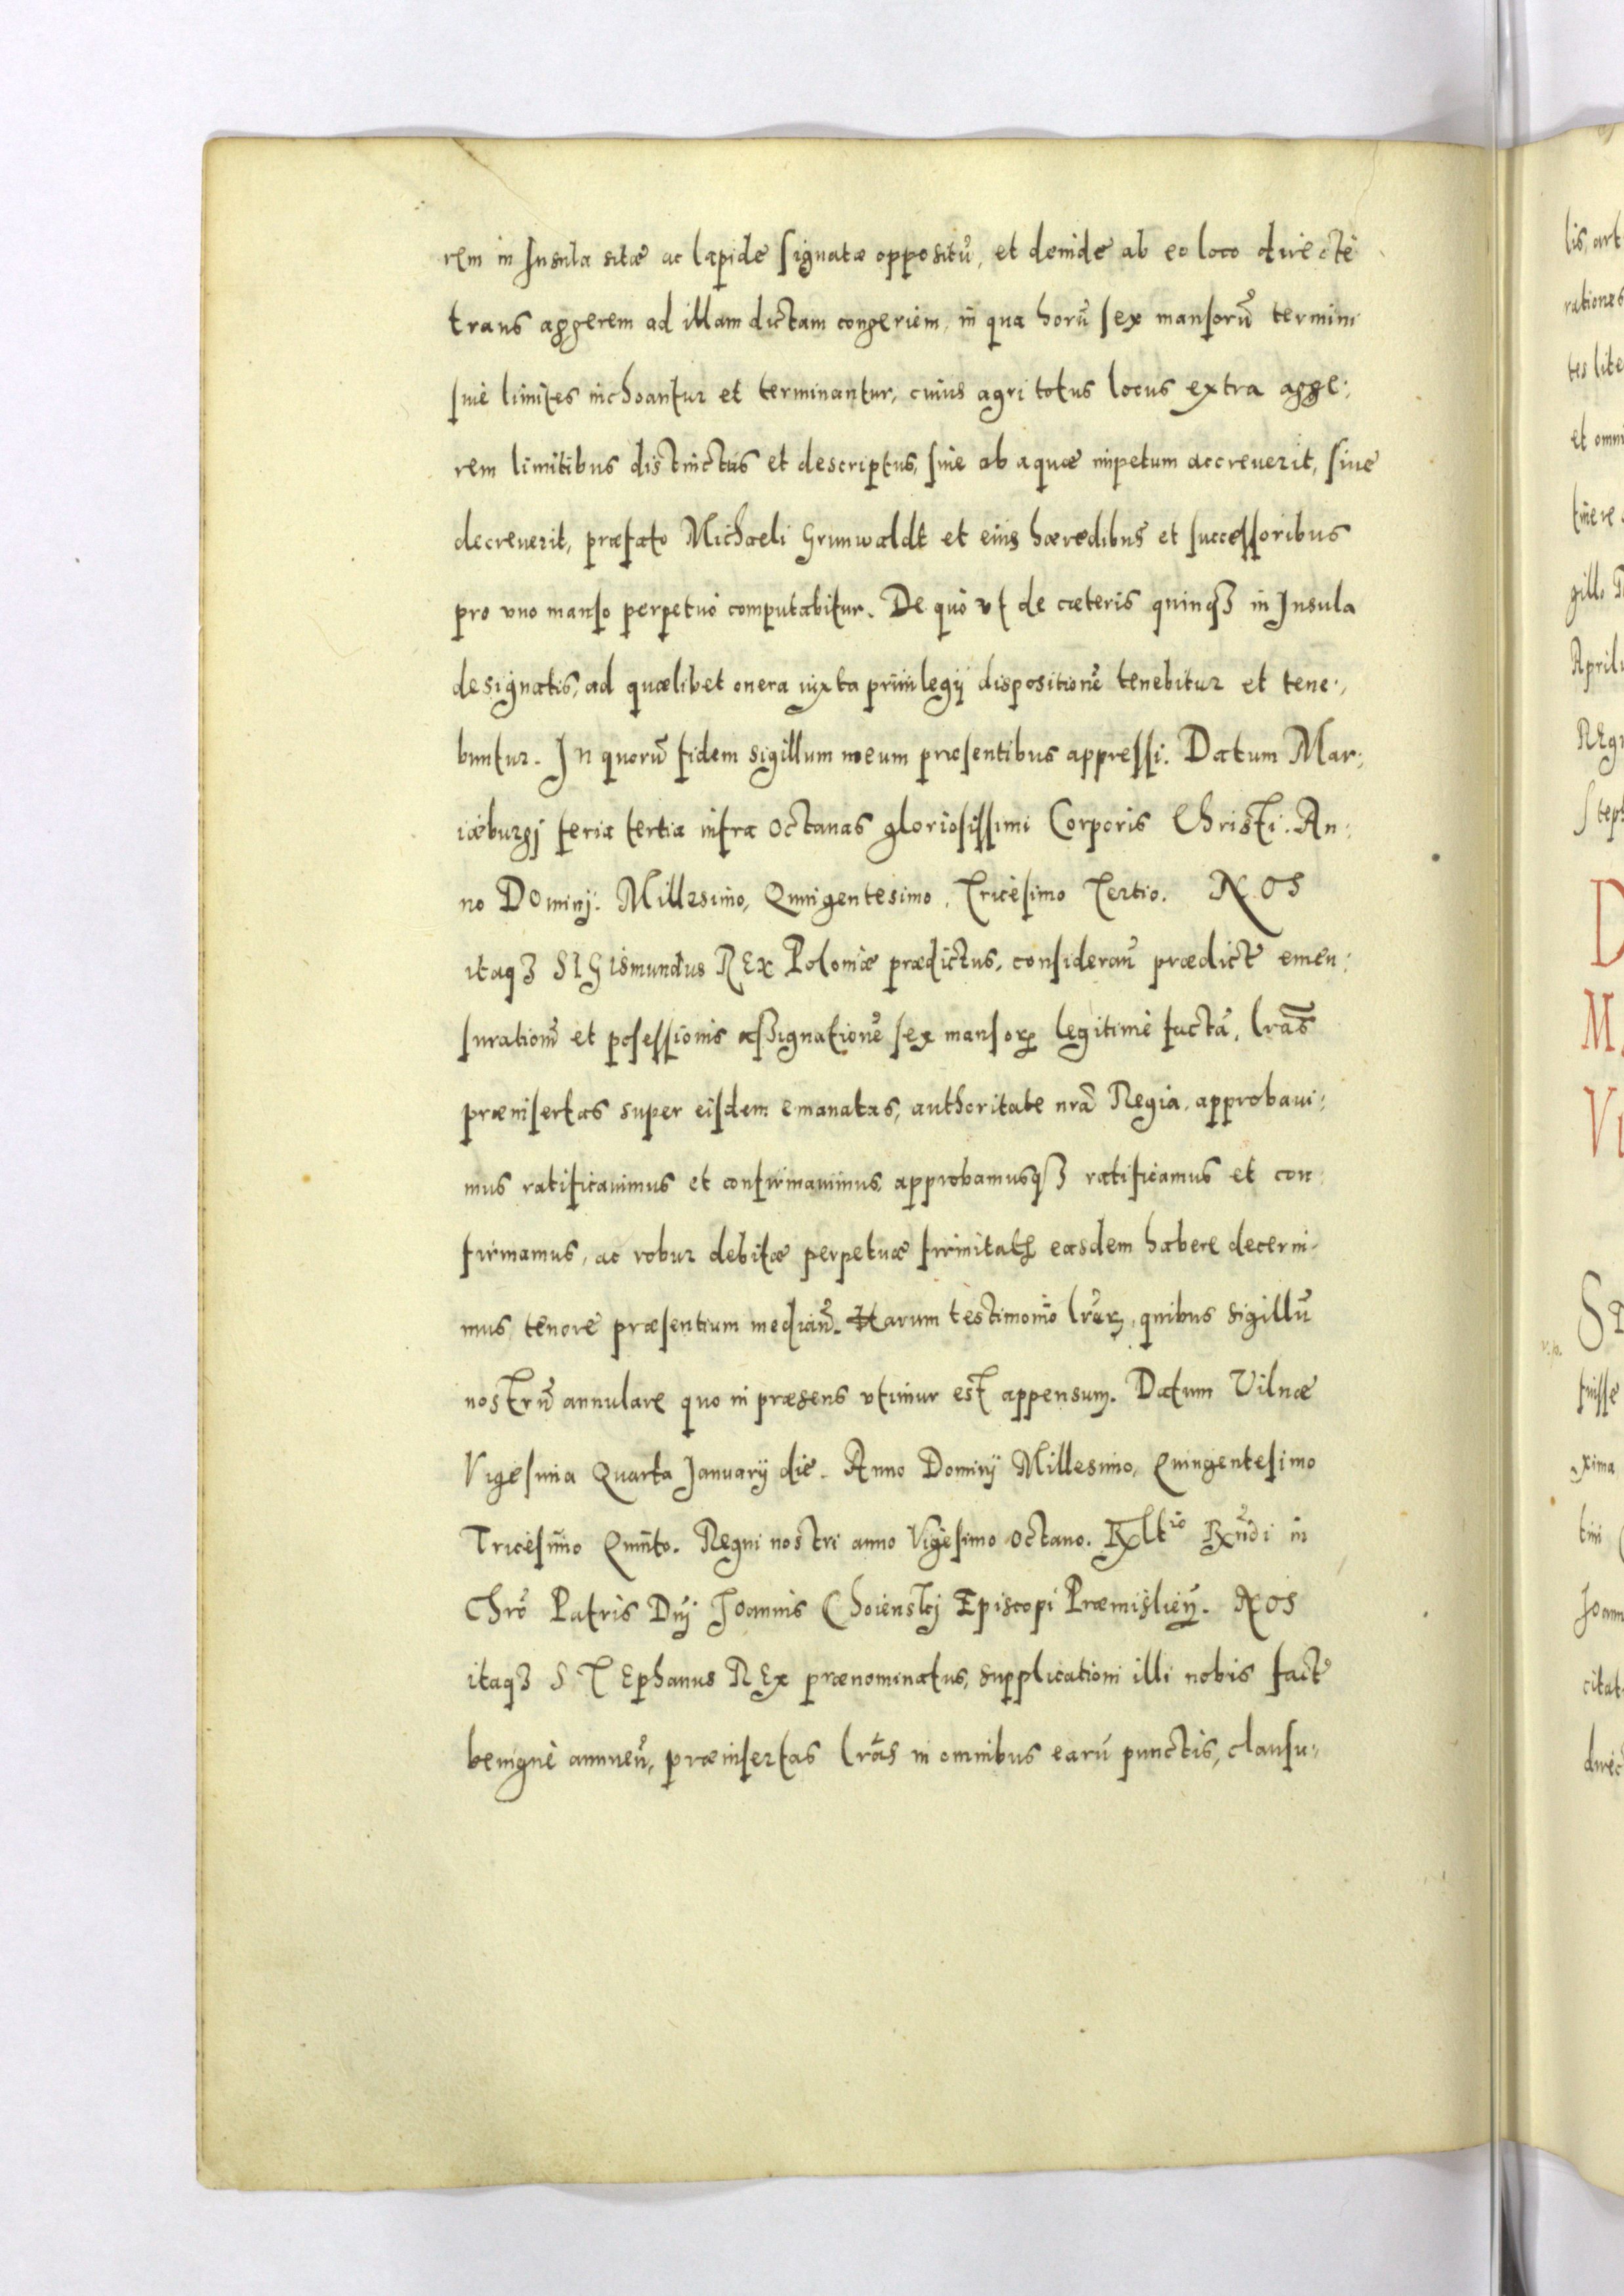 rem in Insula sitæ ac lapide signatæ oppositũ, et deinde ab eo loco directè
trans aggerem ad illam dictam congeriem, in qua horũ sex mansorũ termini
siue limites inchoantur et terminantur, cuius agri totus locus extra agge:
rem limitibus distinctus et descriptus, siue ab aquæ impetum accreuerit, siue
decreuerit, præfato Michaeli Grunwaldt et eius hæredibus et successoribus
pro vno manso perpetuò computabitur. De quo vt de cæteris quinqȝ in Insula
designatis, ad quælibet onera iuxta priuilegij dispositionẽ tenebitur et tene:
buntur. In quorũ fidem sigillum meum præsentibus appressi. Datum Mar:
iæburgj feria tertia infra Octauas gloriosissimi Corporis Christi. An:
no Dominj. Millesimo, Quingentesimo, Tricesimo Tertio. NOS
itaqȝ SIGismundus REx Poloniæ prædictus, considerañ prædict emen:
surationẽ et posessionis assignationẽ sex mansorꝝ legitimè factã, lrãs
præinsertas super eisdem emanatas, authoritate nrã Regia, approbaui:
mus ratificauimus et confirmauimus, approbamusqȝ ratificamus et con
firmamus, ac robur debitæ perpetuæ firmitatis easdem habere decerni
mus, tenore præsentium mediañ. Harum testimonio lrãrꝝ, quibus sigillũ
nostrũ annulare quo in præsens vtimur est appensum. Datum Vilnæ
Vigesima Quarta Januarij die. Anno Dominj Millesimo, Quingentesimo
Tricesimo Quinto. Regni nostri anno Vigesimo octauo. Rltio Rñdi in
Chrõ Patris Dnj Joannis Choienskj Episcopi Præmislieñ. NOS
itaqȝ STEphanus REx prænominatus, supplicationi illi nobis fact
benignè annueñ, præinsertas lrãs in omnibus earũ punctis, clausu:
lis, art
rationes
tes lite
et omni
tinere
gillo
Aprilis
Regn
Step
D
M
V
fuisse
xima
tini
Joann
citat
direc